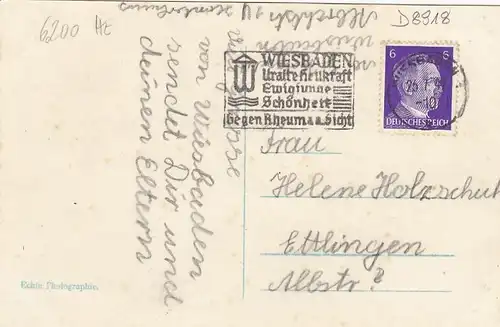 6200 Hz
D8918
WIESBADEN
Uralte Heilkraft
Ewig junge
Schönheit
Gegen Rheuma u. Gicht
6 6
DEUTSCHES REICH
WIESBADEN
Viele Grüsse
von Wiesbaden
sendet Dir und
deinen Eltern
Wiesbaden
Frau
Helene Holzschuh
Ettlingen
Albstr?
Echte Photographie.